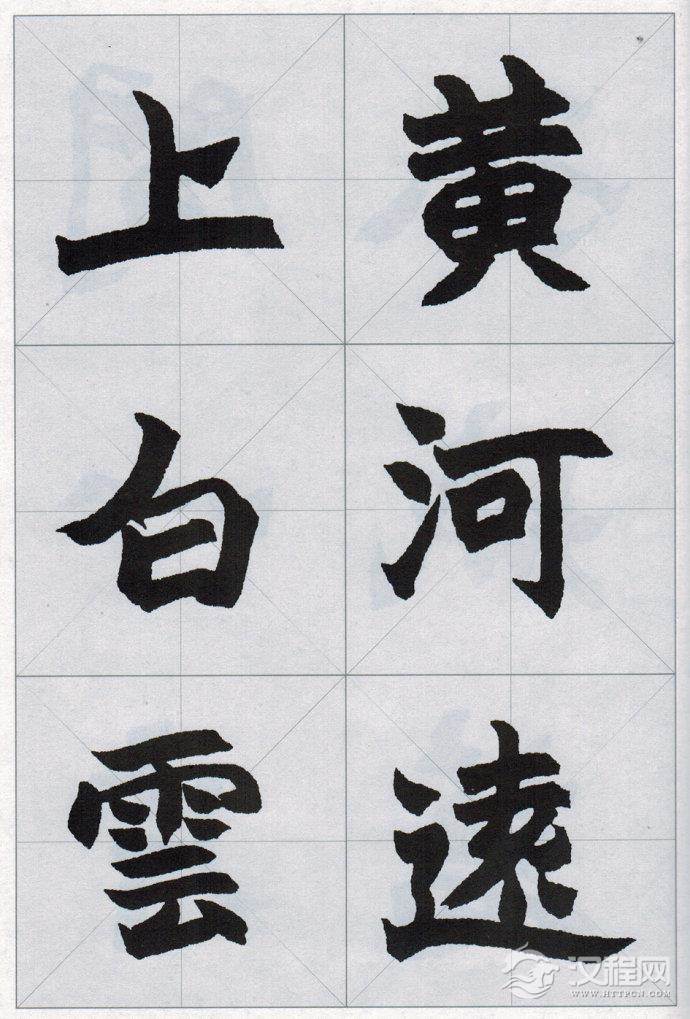 黄河遠
上白雲
汉程网
WWW.HTTPCN.COM